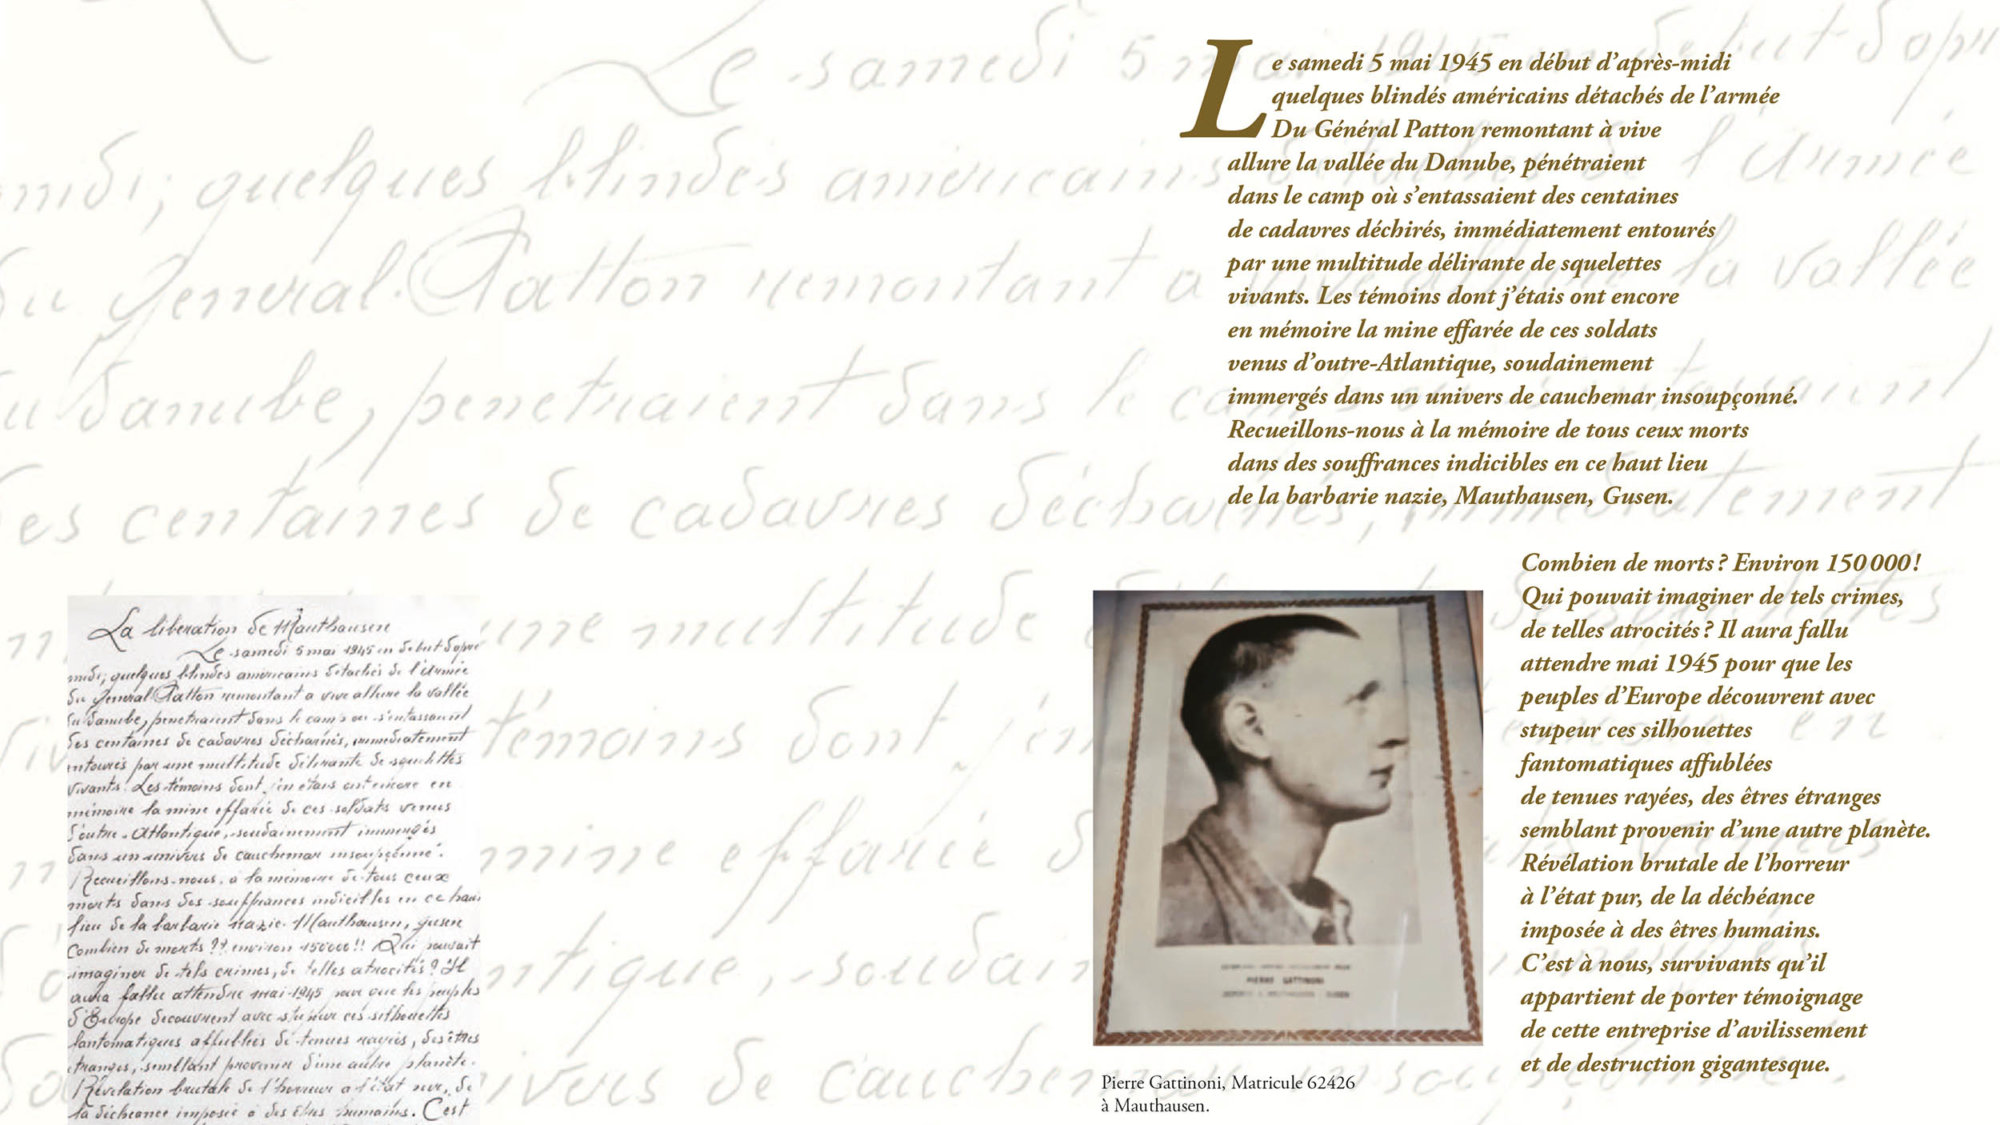 Le samedi 5 mai 1945 en début d'après-midi
quelques blindés américains détachés de l'armée
Du Général Patton remontant à vive
allure la vallée du Danube, pénétraient
dans le camp où s'entassaient des centaines
de cadavres déchirés, immédiatement entourés
par une multitude délirante de squelettes
vivants. Les témoins dont j'étais ont encore
en mémoire la mine effarée de ces soldats
venus d'outre-Atlantique, soudainement
immergés dans un univers de cauchemar insoupçonné.
Recueillons-nous à la mémoire de tous ceux morts
dans des souffrances indicibles en ce haut lieu
de la barbarie nazie, Mauthausen, Gusen.
Combien de morts ? Environ 150 000 !
Qui pouvait imaginer de tels crimes,
de telles atrocités ? Il aura fallu
attendre mai 1945 pour que les
peuples d'Europe découvrent avec
stupeur ces silhouettes
fantomatiques affublées
de tenues rayées, des êtres étranges
semblant provenir d'une autre planète.
Révélation brutale de l'horreur
à l'état pur, de la déchéance
imposée à des êtres humains.
C'est à nous, survivants qu'il
appartient de porter témoignage
de cette entreprise d'avilissement
et de destruction gigantesque.
La libération de Mauthausen
Le samedi 5 mai 1945 en debut d'apré
midi, quelques blindés américains détachés de l'armée
du général Patton remontant a vive allure la vallée
du danube, penetraient dans le camp ou s'entassaient
des centaines de cadavres décharnés, immédiatement
entourés par une multitude délirante de squelettes
vivants. Les témoins dont j'en étais ont encore en
mémoire la mine effarée de ces soldats venus
d'outre-Atlantique, soudainement immergés
dans un univers de cauchemar insoupçonné.
Recueillons-nous, a la mémoire de tous ceux
morts dans des souffrances indicibles en ce haut
lieu de la barbarie nazie. Mauthausen, gusen
Combien de morts ?? environ 150000 !! Qui pouvait
imaginer de tels crimes, de telles atrocités ? Il
aura fallu attendre mai-1945 pour que les peuples
d'Europe decouvrent avec stupeur ces silhouettes
fantomatiques affublées de tenues rayées, des êtres
étranges, semblant provenir d'une autre planète.
Révélation brutale de l'horreur a l'état pur, de
la déchéance imposée a des êtres humains. C'est
PIERRE GATTINONI
Pierre Gattinoni, Matricule 62426
à Mauthausen.